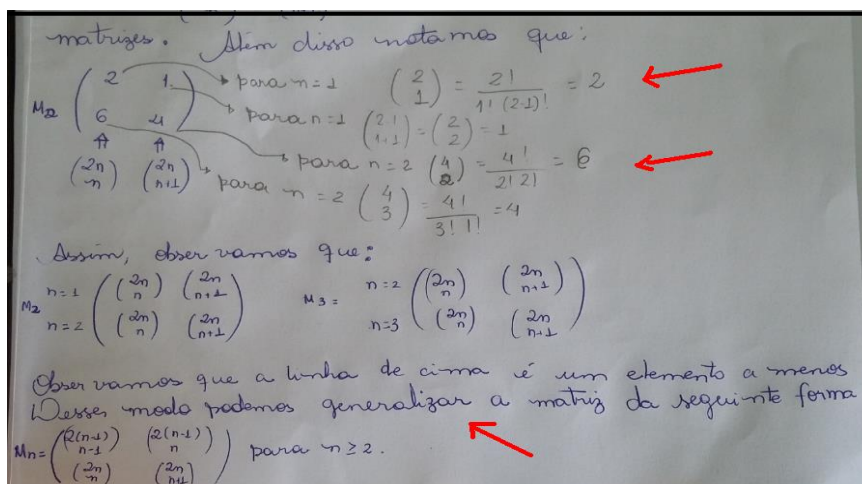 matrizes. Além disso notamos que:
M2 ( 2 1 → para n=1 (2 1) = 2!/1!(2-1)! = 2
para n=1 (2.1 1+1) = (2 2) = 1
6 4 ) para n=2 (4 2) = 4!/2!2! = 6
(2n n) (2n n+1) para n=2 (4 3) = 4!/3!1! = 4
Assim, observamos que:
M2 n=1 ( (2n n) (2n n+1) M3 = n=2 ( (2n n) (2n n+1)
n=2 (2n n) (2n n+1) ) n=3 (2n n) (2n n+1) )
Observamos que a linha de cima é um elemento a menos
Desses modo podemos generalizar a matriz da seguinte forma
Mn = ( (2(n-1) n-1) (2(n-1) n) para n ≥ 2.
(2n n) (2n n+1) )